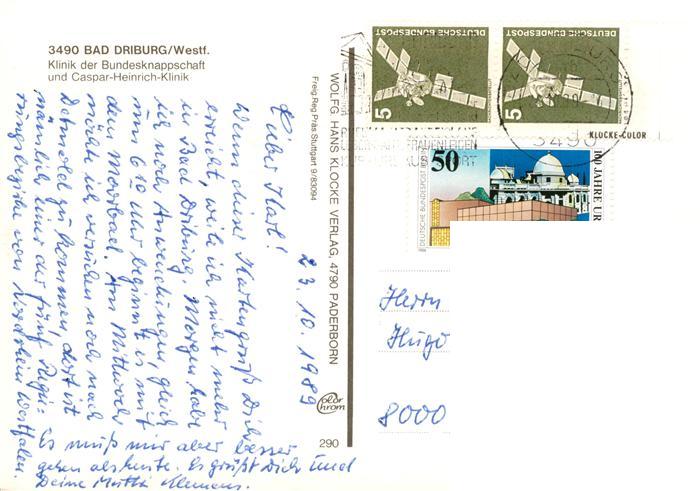 3490 BAD DRIBURG/Westf.
Klinik der Bundesknappschaft
und Caspar-Heinrich-Klinik
DEUTSCHE BUNDESPOST
5
DEUTSCHE BUNDESPOST
5
KLOCKE-COLOR
3490
50
DEUTSCHE BUNDESPOST
100 JAHRE UR
WOLFG. HANS KLOCKE VERLAG, 4790 PADERBORN
Freig. Reg. Präs. Stuttgart 9/83094
Color
Chrom
290
23.10.1989
Lieber Karl!
Wenn dieser Kartengruß Dich
erreicht, weile ich nicht mehr
in Bad Driburg. Morgen habe
ich noch Anwendungen, gleich
um 6 00 Uhr beginnt es mit
dem Moorbad. Am Mittwoch
möchte ich versuchen noch nach
Detmold zu kommen, dort ist
nämlich einer der fünf Regie-
rungsbezirke von Nordrhein Westfalen.
Es muß mir aber besser
gehen als heute. Es grüßt Dich und
Deine Mutti Klemens.
Herrn
Hugo
8000